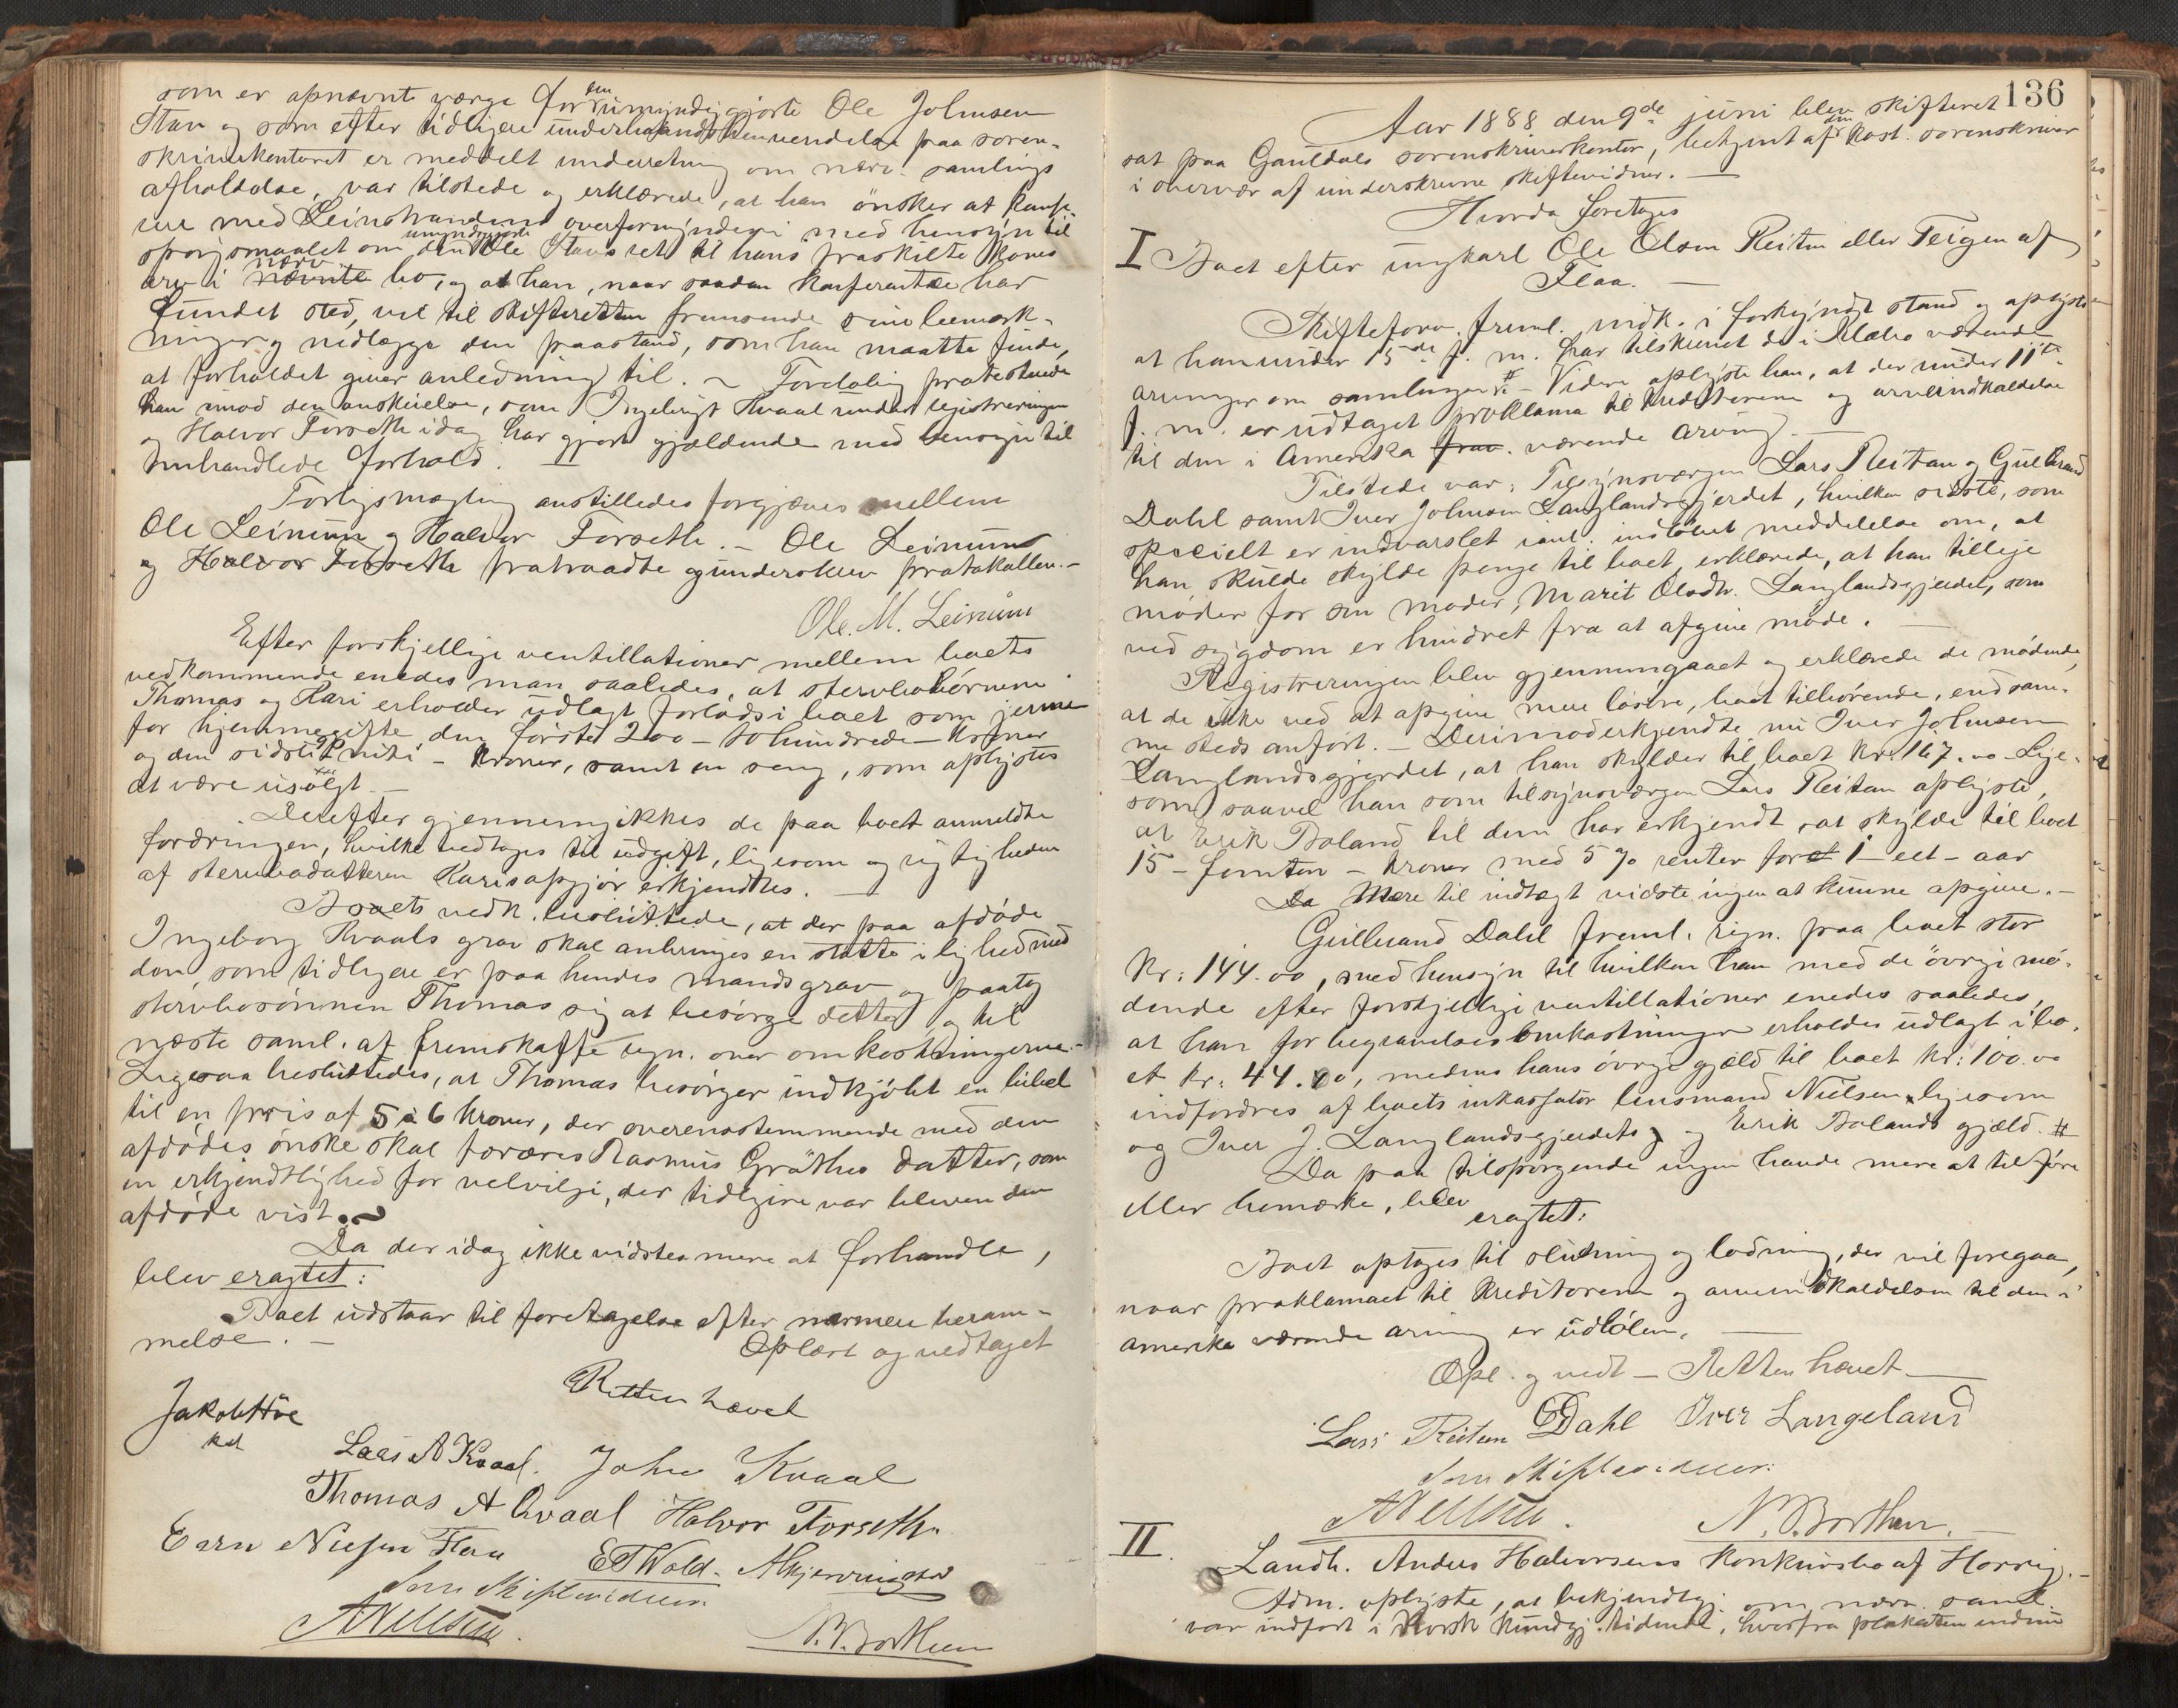 som er opnævnt værge for den umyndiggjorte Ole Johnsen
Stav og som efter tidligere underhaands henvendelse paa soren-
skriverkontoret er meddelt underretning om nærv. samlings
afholdelse, var tilstede og erklærede, at han ønsker at konfe-
rere med Leinstrandens overformynderi med hensyn til
spørgsmaalet om den umyndiggjorte Ole Stavs ret til hans fraskilte kones
arv i nærv. nævnte bo, og at han, naar saadan konferantse har
fundet sted, vil til skifteretten fremsende sine bemærk-
ninger og nedlægge den paastand, som han maatte finde,
at forholdet giver anledning til. - Foreløbig protesterede
han mod den anskuelse, som Ingebrigt Kvaal under registreringen
og Halvor Forseth idag har gjort gjældende med hensyn til
omhandlede forhold. -
Forligsmægling anstilledes forgjæves mellem
Ole Leinum og Halvor Forseth. - Ole Leinum
og Halvor Forseth fratraadte og underskrev protokollen. -
Ole. M. Leinum
Efter forskjellige ventillationer mellem boets
vedkommende enedes man saaledes, at stervbobørnene
Thomas og Kari erholder udlagt forlods i boet som
for hjemmegifte den første 200 - to hundrede - kroner
og den sidste niti - kroner, samt en seng, som oplystes
at være usolgt. -
Derefter gjennemgikkes de paa boet anmeldte
fordringer, hvilke vedtoges til udgift, ligesom og rigtigheden
af stervbodatteren Karis opgjør erkjendtes. -
Boets vedk. besluttede, at der paa afdøde
Ingeborg Kvaals grav skal anbringes en støtte i lighed med
den, som tidligere er paa hendes mands grav og paatog
stervbosønnen Thomas sig at besørge dette, og til
næste saml. at fremskaffe regn. over omkostningerne. -
Ligesaa besluttedes, at Thomas besørger indkjøbt en bibel
til en pris af 5 à 6 kroner, der overensstemmende med den
afdødes ønske skal foræres Rasmus Gräthes datter, som
en erkjendtlighed for velvilje, der tidligere var bleven den
afdøde vist.
Da der idag ikke vidstes mere at forhandle,
blev eragtet:
Boet udstaar til foretagelse efter nærmere beram-
melse. -
Oplæst og vedtaget
Retten hævet
Jakob Høe
Lars A Kvaal. John Kvaal
Thomas A Qvaal Halvor Forseth
E T Wold.
Som Skiftevidner:
A Nielsen. N. N. Borthen
136
Aar 1888 den 9de juni blev skifteret
sat paa Gauldals sorenskriverkontor, betjent af den kost. sorenskriver
i overvær af underskrevne skiftevidner. -
Hvorda foretoges
I Boet efter ungkarl Ole Olsen Reitan eller Teigen af
Flaa. -
Skifteforv. freml. indk. i forkyndt stand og oplyste
at han under 15de f. m. har tilskrevet de i Melhus værende
arvinger om samlingen # - Videre oplyste han, at der under 11te
f. m. er udtaget proklama til kreditorerne og arveindkaldelse
til den i Amerika frav. værende arving. -
Tilstede var: Tilsynsværgen Lars Reitan og Gulbrand
Dahl samt Iver Johnsen Langlandsgjerdet, hvilken sidste, som
specielt er indvarslet ianl. indløbet meddelelse om, at
han skulde skylde penge til boet, erklærede, at han tillige
møder for sin moder, Marit Olsdtr. Langlandsgjerdet, som
ved sygdom er hindret fra at afgive møde. -
Registreringen blev gjennemgaaet og erklærede de mødende,
at de ikke ved at opgive mere løsøre, boet tilhørende, end sam-
me steds anført. - Derimod erkjendte nu Iver Johnsen
Langlandsgjerdet, at han skylder til boet kr. 167.00 - Lige-
som saavel han som tilsynsværgen Lars Reitan oplyste,
at Erik Boland til dem har erkjendt, at skylde til boet
15 - femten - kroner med 5 % renter for et 1 - eet - aar
Da Mere til indtægt vidste ingen at kunne opgive. -
Gulbrand Dahl freml. regn. paa boet stor
kr: 144.00, med hensyn til hvilken han med de øvrige mø-
dende efter forskjellige ventillationer enedes saaledes,
at han for begravelsesomkostninger erholdes udlagt i bo-
et kr: 44.00, medens hans øvrige gjæld til boet kr: 100.00
indfordres af boets inkassator lensmand Nielsen, ligesom
og Iver J. Langlandsgjerdets og Erik Bolands gjæld. #
Da paa tilspørgende ingen havde mere at tilføre
eller bemærke, blev
eragtet:
Boet optages til slutning og lodning, der vil foregaa,
naar proklamaet til kreditorerne og arveindkaldelsen til den i
Amerika værende arving er udløben. -
Opl. og vedt - Retten hævet -
Lars Reitan G Dahl Iver Langeland
Som Skiftevidner:
A Nielsen. N. N. Borthen.
II. Landh. Anders Halvorsens konkursbo af Horrig. -
Adm. oplyste, at bekjendtgj. om nærv. saml.
var indført i Norsk kundgj. tidende, hvorfra plakaten endnu